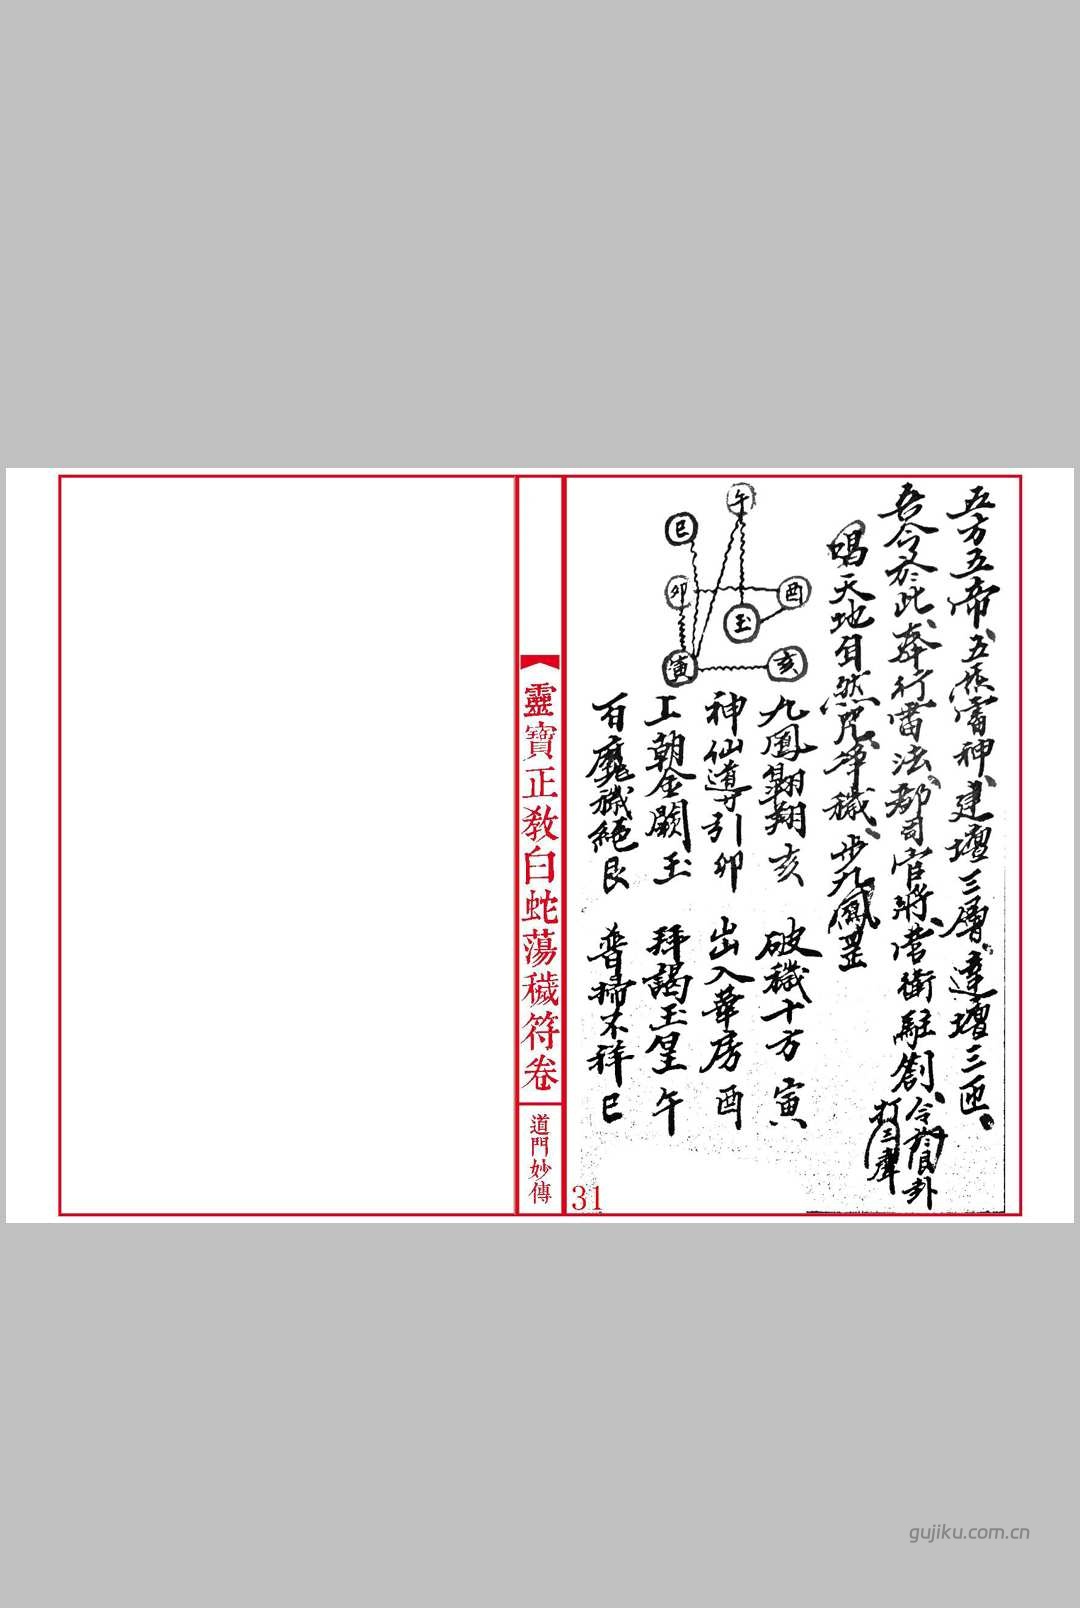 五方五帝五炁雷神建壇三層達壇三匝
吾今於此奉行雷法都司官將營衛駐劄令
卦
打三聲
唱天地自然咒淨穢步九鳳罡
午
巳
卯
酉
玉
寅
亥
九鳳翱翔亥 破穢十方寅
神仙導引卯 出入華房酉
上朝金闕玉 拜謁玉皇午
百魔穢絕艮 普掃不祥巳
靈寶正教白蛇蕩穢符卷
道門妙傳
31
gujiku.com.cn